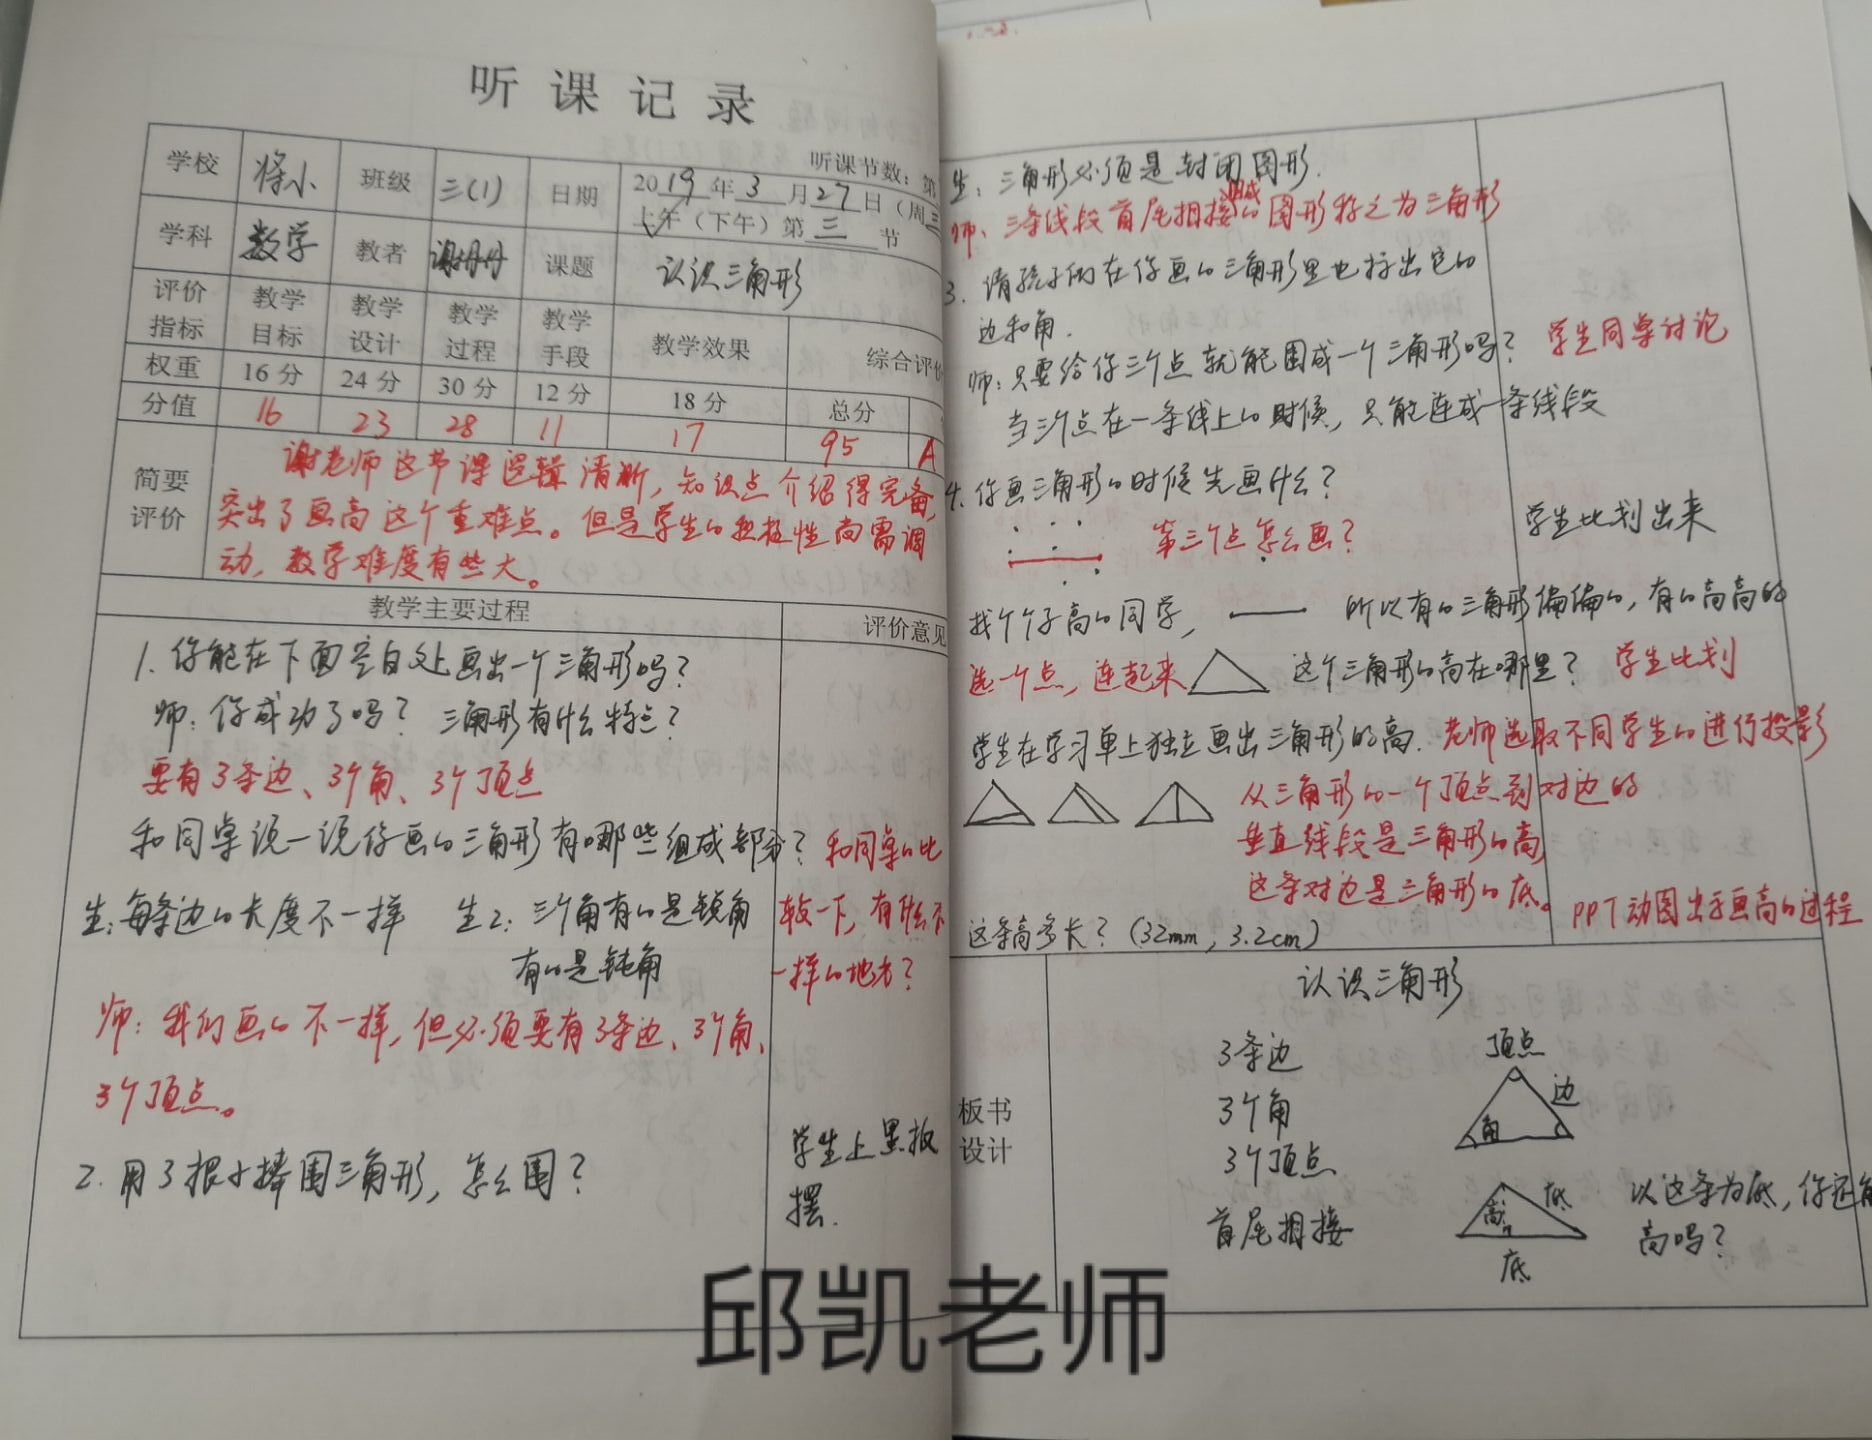 听课记录
听课节数：第
学校 将小 班级 三(1) 日期 2019年3月27日（周三
上午（下午）第三节
学科 数学 教者 谢丹丹 课题 认识三角形
评价指标 教学目标 教学设计 教学过程 教学手段 教学效果 综合评价
权重 16分 24分 30分 12分 18分 总分
分值 16 23 28 11 17 95 A
简要评价
谢老师这节课逻辑清晰，知识点介绍得完备，
突出了画高这个重难点。但是学生的积极性尚需调
动，教学难度有些大。
教学主要过程 评价意见
1.你能在下面空白处上画出一个三角形吗？
师：你成功了吗？ 三角形有什么特点？
要有3条边、3个角、3个顶点
和同桌说一说你画的三角形有哪些组成部分？
和同桌的比
较一下，有什么不
一样的地方？
生：每条边的长度不一样 生2：三个角有的是锐角
有的是钝角
师：我们画的不一样，但必须要有3条边、3个角、
3个顶点。
2.用3根小棒围三角形，怎么围？
学生上黑板
摆.
生：三角形必须是封闭图形.
师：三条线段首尾相接组成的图形称之为三角形
3.请孩子们在你画的三角形里也标出它的
边和角.
师：只要给你三个点就能围成一个三角形吗？ 学生同桌讨论
当三个点在一条线上的时候，只能连成一条线段
4.你画三角形的时候先画什么？
第三个点怎么画？
学生比划出来
找个个子高的同学， 所以有的三角形偏偏的，有的高高的
选一个点，连起来 这个三角形的高在哪里？ 学生比划
学生在学习单上独立画出三角形的高. 老师选取不同学生的进行投影
从三角形的一个顶点到对边的
垂直线段是三角形的高，
这条对边是三角形的底。
PPT动图出示画高的过程
这条高多长？（32mm，3.2cm）
板书设计
认识三角形
3条边
3个角
3个顶点
首尾相接
顶点
边
角
高
底
底
以这条为底，你还能
高吗？
邱凯老师